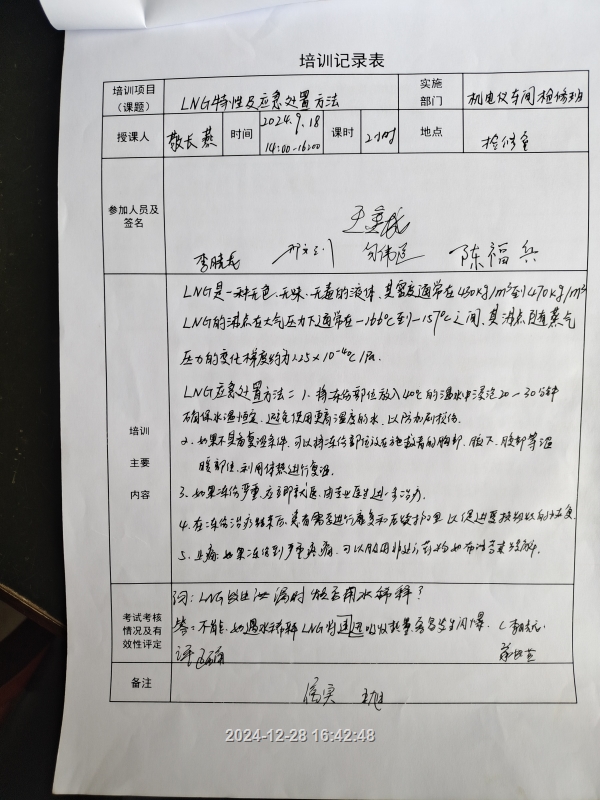 培训记录表
培训项目
（课题）
LNG特性及应急处置方法
实施
部门
机电仪车间检修班
授课人
敬长燕
时间
2024.9.18
14:00-16:00
课时
2小时
地点
检修室
参加人员及
签名
李晓龙
陈福兵
培训
主要
内容
LNG是一种无色、无味、无毒的液体，其密度通常在430kg/m³到470kg/m³
LNG的沸点在大气压力下通常在-166℃到-157℃之间，其沸点随蒸气
压力的变化梯度约为1.25×10⁻⁴℃/Pa.
LNG应急处置方法：1. 将冻伤部位放入40℃的温水中浸泡20-30分钟
确保水温恒定，避免使用更高温度的水，以防加剧损伤.
2. 如果不具备复温条件，可以将冻伤部位放在施救者的胸部、腋下、腹部等温
暖部位，利用体热进行复温.
3. 如果冻伤严重，应立即就医，由专业医生进一步治疗.
4. 在冻伤治疗结束后，患者需要进行康复和后续护理，以促进
5. 止痛：如果冻伤到严重疼痛，可以服用
考试考核
情况及有
效性评定
问：LNG发生泄漏时能否用水稀释？
答：不能，如遇水稀释LNG将迅速吸收热量，容易发生闪爆.
评：正确
备注
属实
2024-12-28 16:42:48